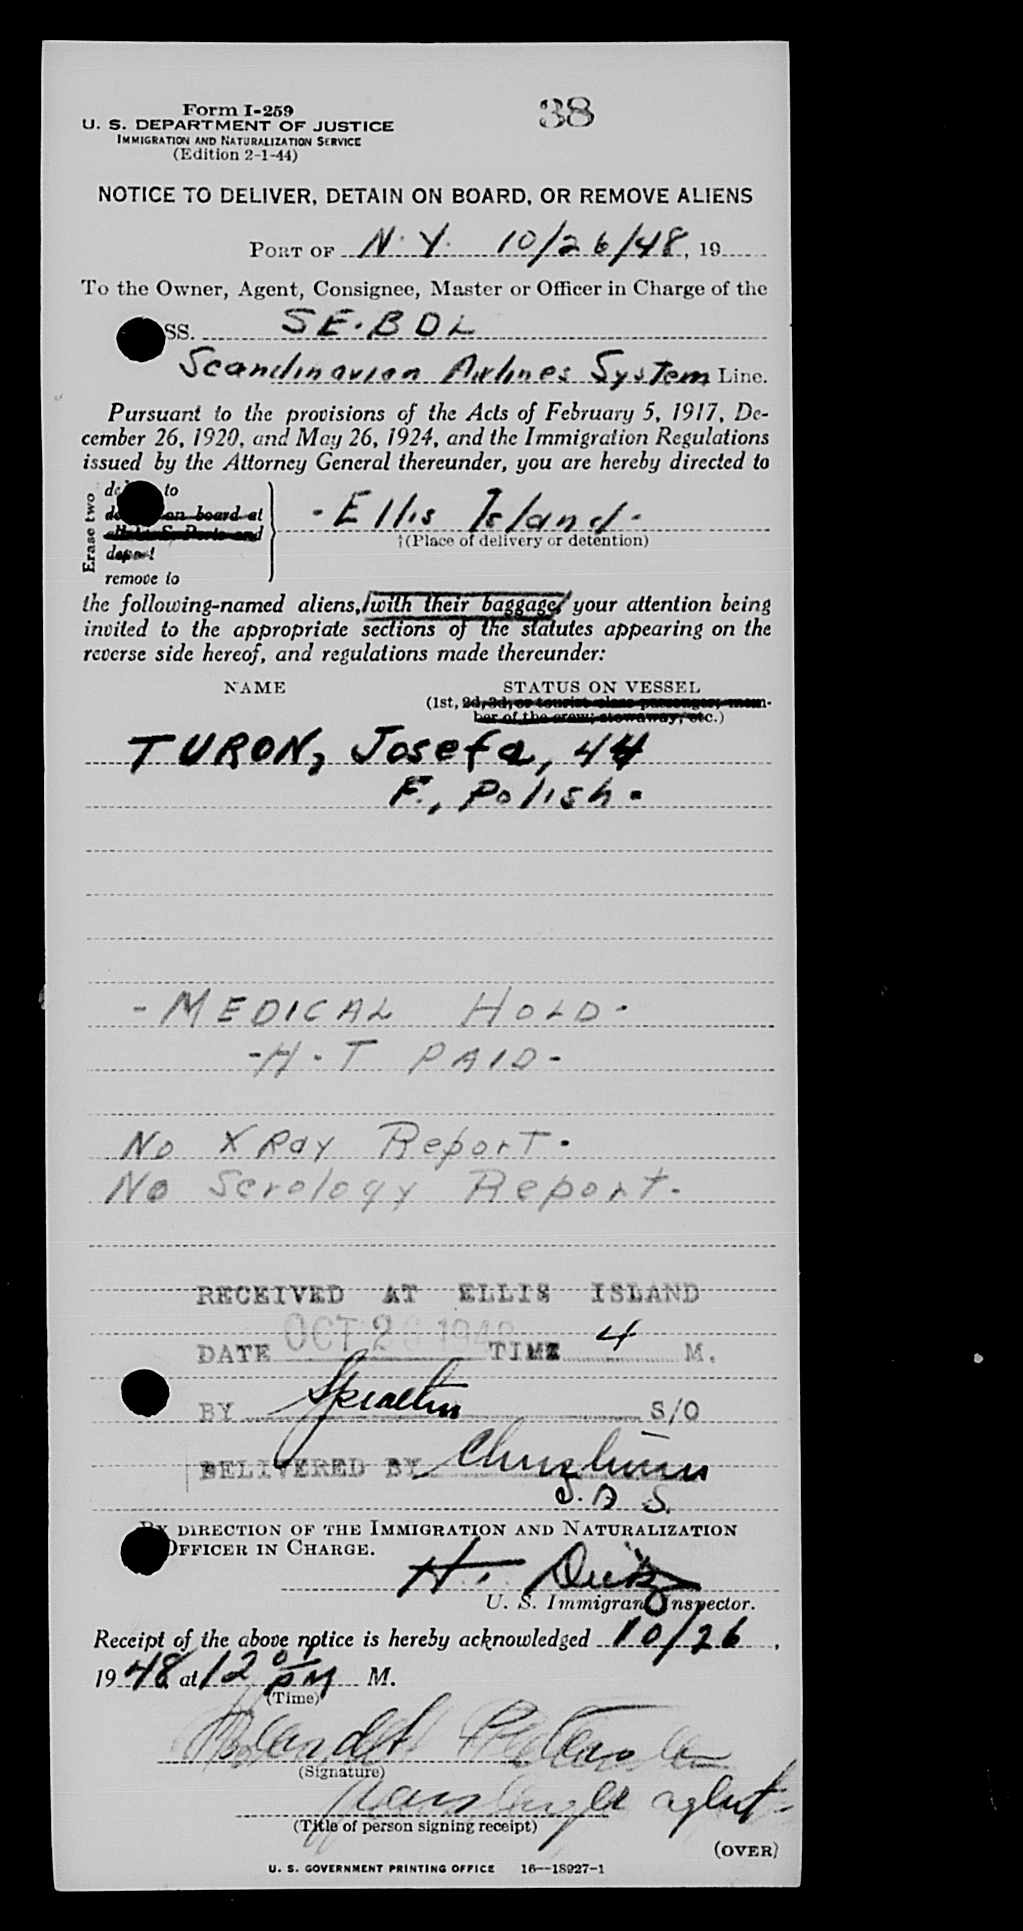 Form I-259
U. S. DEPARTMENT OF JUSTICE
IMMIGRATION AND NATURALIZATION SERVICE
(Edition 2-1-44)
38
NOTICE TO DELIVER, DETAIN ON BOARD, OR REMOVE ALIENS
PORT OF N. Y. 10/26/48, 19
To the Owner, Agent, Consignee, Master or Officer in Charge of the
SS. SE-BDL
Scandinavian Airlines System Line.
Pursuant to the provisions of the Acts of February 5, 1917, De-
cember 26, 1920, and May 26, 1924, and the Immigration Regulations
issued by the Attorney General thereunder, you are hereby directed to
Erase two
to
on board at
deport
remove to
- Ellis Island -
†(Place of delivery or detention)
the following-named aliens, /with their baggage/ your attention being
invited to the appropriate sections of the statutes appearing on the
reverse side hereof, and regulations made thereunder:
NAME
STATUS ON VESSEL
(1st, 2d, 3d, or tourist class passenger; mem-
ber of the crew; stowaway, etc.)
TURON, Josefa, 44
F., Polish.
- MEDICAL HOLD -
- H.T PAID -
No X Ray Report.
No Serology Report.
RECEIVED AT ELLIS ISLAND
DATE OCT 26 1948 TIME 4 M.
BY S/O
DELIVERED BY
S. A S.
BY DIRECTION OF THE IMMIGRATION AND NATURALIZATION
OFFICER IN CHARGE.
H.
U. S. Immigrant Inspector.
Receipt of the above notice is hereby acknowledged 10/26,
1948 at 12 01 PM M.
(Time)
(Signature)
Passenger agent
(Title of person signing receipt)
(OVER)
U. S. GOVERNMENT PRINTING OFFICE 16—18927-1